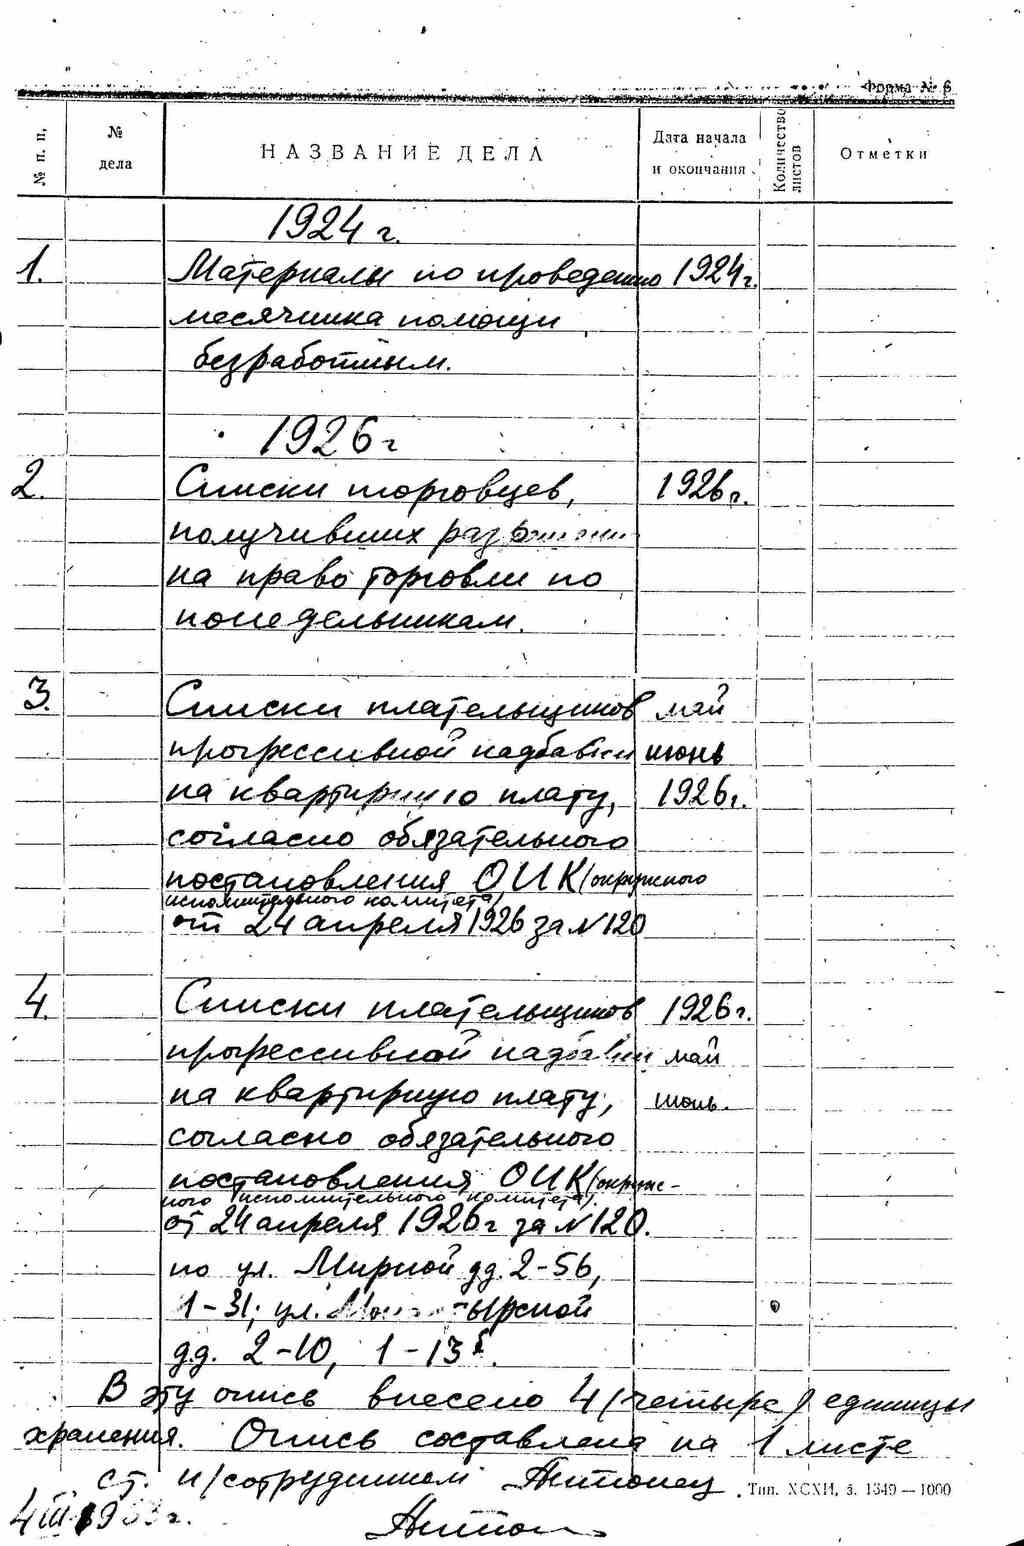 Форма № 6
№ п. п.
№ дела
НАЗВАНИЕ ДЕЛА
Дата начала и окончания
Количество листов
Отметки
1924 г.
1. Материалы по проведению 1924 г.
месячника помощи
безработным.
1926 г
2. Списки торговцев, 1926 г.
получивших
на право торговли по
понедельникам.
3. Списки плательщиков май
прогрессивной надбавки июнь
на квартирную плату, 1926 г.
согласно обязательного
постановления ОИК (окружного
исполнительного комитета)
от 24 апреля 1926 за N 120
4. Списки плательщиков 1926 г.
прогрессивной надбавки май
на квартирную плату, июнь.
согласно обязательного
постановления ОИК (окруж-
ного исполнительного комитета)
от 24 апреля 1926 г за N 120.
по ул. Мирной дд. 2-56,
1-31; ул. Монастырской
дд. 2-10, 1-13
В эту опись внесено 4 (четыре) единицы
хранения. Опись составлена на 1 листе
ст. н/сотрудником
Тип. ХСХИ, з. 1649 — 1000